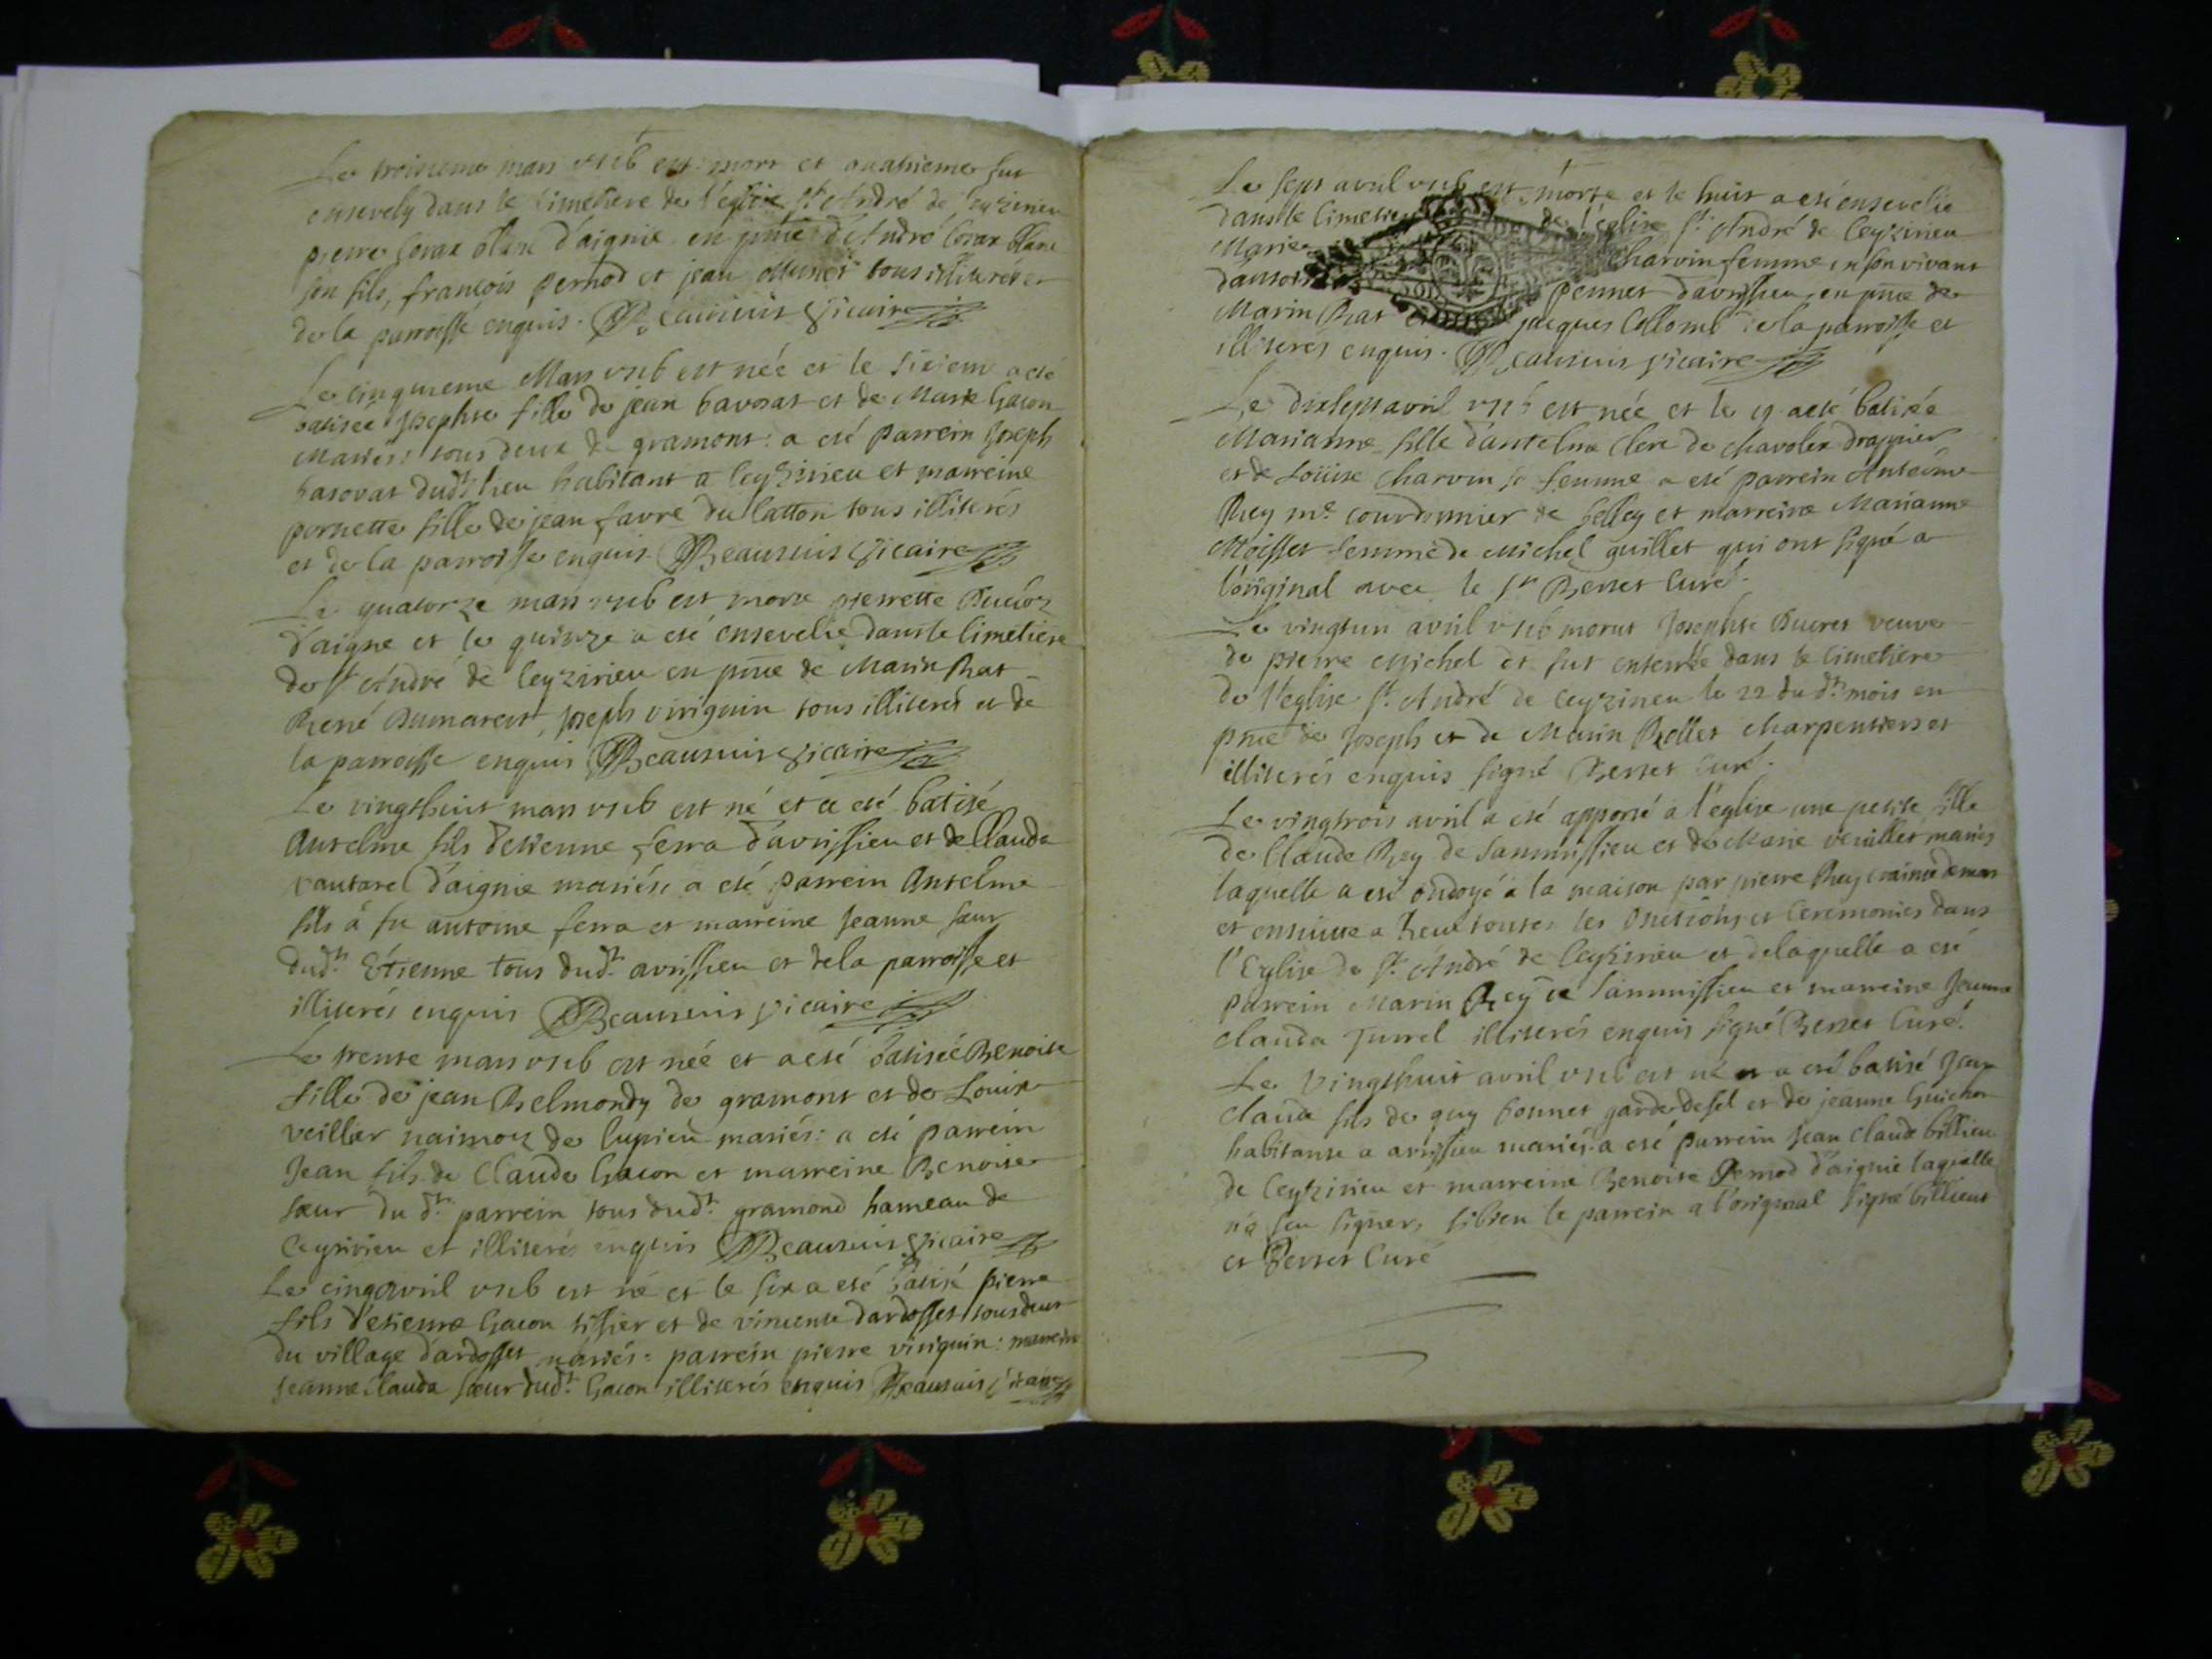 Le troisieme mars est mort et quatrieme fut
ensevely dans le cimetiere de l'église St André de Ceyzirieu
pierre d'aignie en pnce d'André
son fils, francois pernod et jean tous illiterez et
de la parroisse enquis. Beausuis vicaire
Le cinquieme Mars est née et le a eté
batisée Josephte fille de jean bavosat et de Marie Gacon
Mariés: tous deux de gramont: a eté parrein Joseph
bavosat dudt lieu habitant a leyzirieu et marreine
pernette fille de jean favre du latton tous illiterés
et de la parroisse enquis Beausuis vicaire
Le quatorze mars est morte pierrette
d'aigne et le quinze a eté ensevelie dans le cimetiere
de St André de leyzirieu en pnce de Marin Rat
René Dumarest, Joseph viriguin tous illiterés et de
la parroisse enquis Beausuis vicaire
Le vingthuit mars est né et a eté batisé
Antelme fils d'etienne ferra d'avrissieu et de Clauda
vautarel d'aignie mariés, a eté parrein Antelme
fils à fu antoine ferra et marreine Jeanne sœur
dudt Etienne tous dudt avrissieu et de la parroisse et
illiterés enquis Beausuis vicaire
Le trente mars est née et a eté batisée Benoite
fille de jean Belmondy de gramont et de Louise
veillier de lupieu mariés: a eté parrein
Jean fils de Claude Gacon et marreine Benoite
sœur du dt parrein tous dudt gramond hameau de
Ceyzirieu et illiterés enquis Beausuis vicaire
Le cinq avril est né et le six a eté batisé pierre
fils d'etienne Gacon tissier et de vincente dardosset tous deux
du village d'ardosset mariés: parrein pierre viriguin: marreine
Jeanne Clauda sœur dudt Gacon illiterés enquis Beausuis vicaire
Le sept avril est morte et le huit a eté ensevelie
dans le cimetiere de l'église St André de Ceyzirieu
Marie charvin femme en son vivant
pennet d'avrissieu, en pnce de
Marin Rat jacques Collomb de la parroisse et
illiterés enquis. Beausuis vicaire
Le dixsept avril est née et le 19 a eté batisée
Marianne fille d'antelme Clerc de chavolex drappier
et de Loüise charvin sa femme a eté parrein Antelme
Rey me courdonnier de belley et marreine Marianne
Moisset femme de Michel guillet qui ont signé a
l'original avec le Sr Berret Curé.
Le vingtun avril morut Josephte Ducret veuve
de pierre Michel et fut enterrée dans le cimetiere
de l'eglise St André de Ceyzirieu le 22 du dt mois en
pnce de Joseph et de Marin Rellet charpentiers et
illiterés enquis signé Berret Curé.
Le vingtrois avril a eté apporté a l'eglise une petite fille
de Claude Rey de Sammissieu et de Marie veuillet mariés
laquelle a eté ondoyé a la maison par pierre Rey
et ensuitte a Reçu toutes les Onctions et Ceremonies dans
l'Eglise de St André de Ceyzirieu et delaquelle a eté
parrein Marin Rey de Sammissieu et marreine Jeanne
clauda Jurrel illiterés enquis signé Berret Curé.
Le Vingthuit avril est né et a eté batisé Jean
Claude fils de guy bonnet garde de sel et de jeanne Guichon
habitante a avrissieu mariés. a eté parrein Jean Claude billieu
de Ceyzirieu et marreine Benoite Pernod d'aignie laquelle
n'a seu signer, si bien le parrein a l'original signé billieux
et Berret Curé